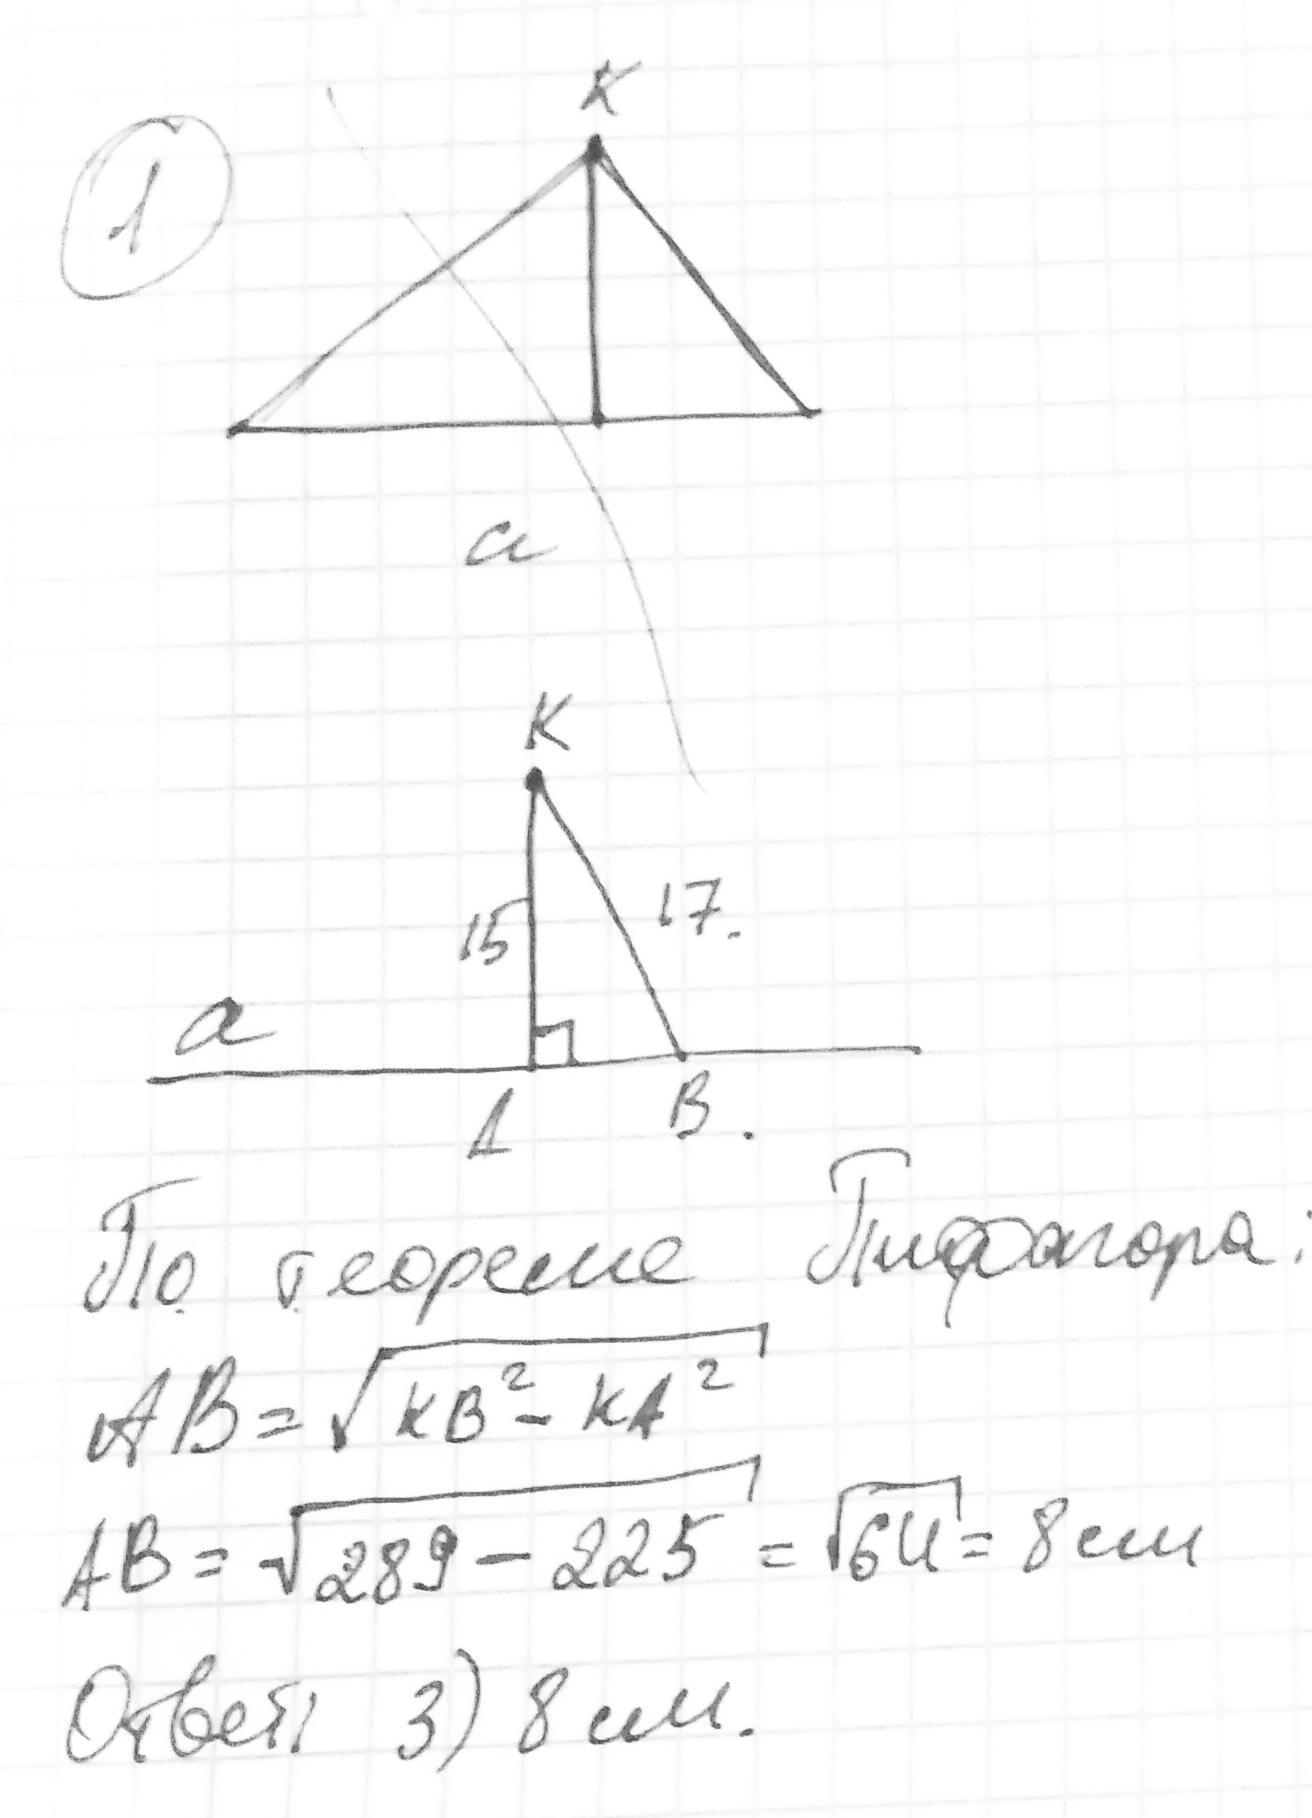 1
K
a
K
15 17.
a
A B.
По теореме Пифагора:
AB = √(KB² - KA²)
AB = √(289 - 225) = √64 = 8 см
Ответ: 3) 8 см.